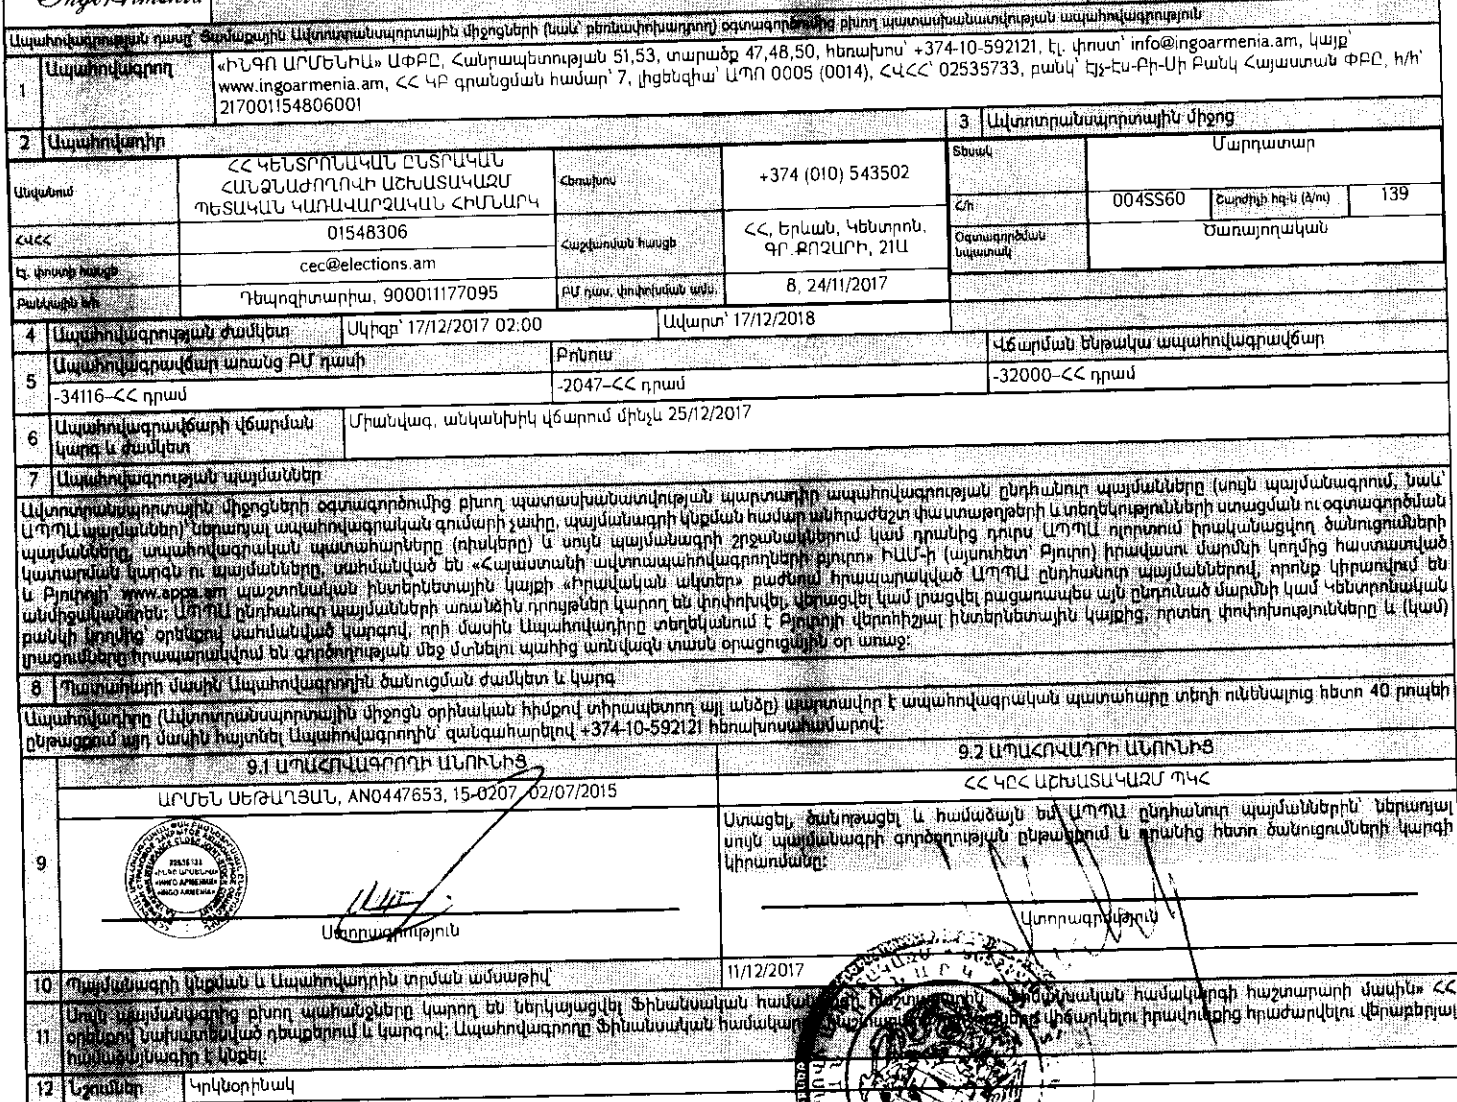 IngoArmenia
Ապահովագրության դասը՝ Ցամաքային Ավտոտրանսպորտային միջոցների (նաև՝ բեռնափոխադրող) օգտագործումից բխող պատասխանատվության ապահովագրություն
1 Ապահովագրող «ԻՆԳՈ ԱՐՄԵՆԻԱ» ԱՓԲԸ, Հանրապետության 51,53, տարածք 47,48,50, հեռախոս՝ +374-10-592121, Էլ. փոստ՝ info@ingoarmenia.am, կայք՝
www.ingoarmenia.am, ՀՀ ԿԲ գրանցման համար՝ 7, լիցենզիա՝ ԱՊՈ 0005 (0014), ՀՎՀՀ՝ 02535733, բանկ՝ Էյչ-Էս-Բի-Սի Բանկ Հայաստան ՓԲԸ, հ/հ՝
217001154806001
2 Ապահովադիր
3 Ավտոտրանսպորտային միջոց
Անվանում ՀՀ ԿԵՆՏՐՈՆԱԿԱՆ ԸՆՏՐԱԿԱՆ
ՀԱՆՁՆԱԺՈՂՈՎԻ ԱՇԽԱՏԱԿԱԶՄ
ՊԵՏԱԿԱՆ ԿԱՌԱՎԱՐՉԱԿԱՆ ՀԻՄՆԱՐԿ
Հեռախոս +374 (010) 543502
Տեսակ Մարդատար
Հ/հ 004SS60 Շարժիչի հզ-ն (ձ/ու) 139
ՀՎՀՀ 01548306
Հաշվառման հասցե ՀՀ, Երևան, Կենտրոն,
ԳՐ.ՔՈՉԱՐԻ, 21Ա
Օգտագործման
նպատակ Ծառայողական
Էլ. փոստի հասցե cec@elections.am
Բանկային հ/հ Դեպոզիտարիա, 900011177095 ԲՄ դաս, փոփոխման ամս. 8, 24/11/2017
4 Ապահովագրության ժամկետ Սկիզբ՝ 17/12/2017 02:00 Ավարտ՝ 17/12/2018
5 Ապահովագրավճար առանց ԲՄ դասի Բոնուս Վճարման ենթակա ապահովագրավճար
-34116-ՀՀ դրամ -2047-ՀՀ դրամ -32000-ՀՀ դրամ
6 Ապահովագրավճարի վճարման
կարգ և ժամկետ Միանվագ, անկանխիկ վճարում մինչև 25/12/2017
7 Ապահովագրության պայմաններ
Ավտոտրանսպորտային միջոցների օգտագործումից բխող պատասխանատվության պարտադիր ապահովագրության ընդհանուր պայմանները (սույն պայմանագրում, նաև՝
ԱՊՊԱ պայմաններ)՝ ներառյալ ապահովագրական գումարի չափը, պայմանագրի կնքման համար անհրաժեշտ փաստաթղթերի և տեղեկությունների ստացման ու օգտագործման
պայմանները, ապահովագրական պատահարները (ռիսկերը) և սույն պայմանագրի շրջանակներում կամ դրանից դուրս ԱՊՊԱ ոլորտում իրականացվող ծանուցումների
կատարման կարգն ու պայմանները, սահմանված են «Հայաստանի ավտոապահովագրողների բյուրո» ԻԱՄ-ի (այսուհետ՝ Բյուրո) իրավասու մարմնի կողմից հաստատված
և Բյուրոյի՝ www.appa.am պաշտոնական ինտերնետային կայքի «Իրավական ակտեր» բաժնում հրապարակված ԱՊՊԱ ընդհանուր պայմաններով, որոնք կիրառվում են
անմիջականորեն: ԱՊՊԱ ընդհանուր պայմանների առանձին դրույթներ կարող են փոփոխվել, վերացվել կամ լրացվել բացառապես այն ընդունած մարմնի կամ Կենտրոնական
բանկի կողմից՝ օրենքով սահմանված կարգով, որի մասին Ապահովադիրը տեղեկանում է Բյուրոյի վերոհիշյալ ինտերնետային կայքից, որտեղ փոփոխությունները և (կամ)
լրացումները հրապարակվում են գործողության մեջ մտնելու պահից առնվազն տասն օրացուցային օր առաջ:
8 Պատահարի մասին Ապահովագրողին ծանուցման ժամկետ և կարգ
Ապահովադիրը (Ավտոտրանսպորտային միջոցն օրինական հիմքով տիրապետող այլ անձը) պարտավոր է ապահովագրական պատահարը տեղի ունենալուց հետո 40 րոպեի
ընթացքում այդ մասին հայտնել Ապահովագրողին՝ զանգահարելով +374-10-592121 հեռախոսահամարով:
9 9.1 ԱՊԱՀՈՎԱԳՐՈՂԻ ԱՆՈՒՆԻՑ 9.2 ԱՊԱՀՈՎԱԴՐԻ ԱՆՈՒՆԻՑ
ԱՐՄԵՆ ՍԵԹԱՂՅԱՆ, AN0447653, 15-0207, 02/07/2015 ՀՀ ԿԸՀ ԱՇԽԱՏԱԿԱԶՄ ՊԿՀ
Ստացել, ծանոթացել և համաձայն եմ ԱՊՊԱ ընդհանուր պայմաններին՝ ներառյալ
սույն պայմանագրի գործողության ընթացքում և դրանից հետո ծանուցումների կարգի
կիրառմանը:
«ԻՆԳՈ ԱՐՄԵՆԻԱ»
«INGO ARMENIA»
Ստորագրություն Ստորագրություն
10 Պայմանագրի կնքման և Ապահովադրին տրման ամսաթիվ՝ 11/12/2017
11 Սույն պայմանագրից բխող պահանջները կարող են ներկայացվել Ֆինանսական համակարգի հաշտարարին «Ֆինանսական համակարգի հաշտարարի մասին» ՀՀ
օրենքով նախատեսված դեպքերում և կարգով: Ապահովագրողը Ֆինանսական համակարգի վիճարկելու իրավունքից հրաժարվելու վերաբերյալ
համաձայնագիր է կնքել:
12 Նշումներ Կրկնօրինակ